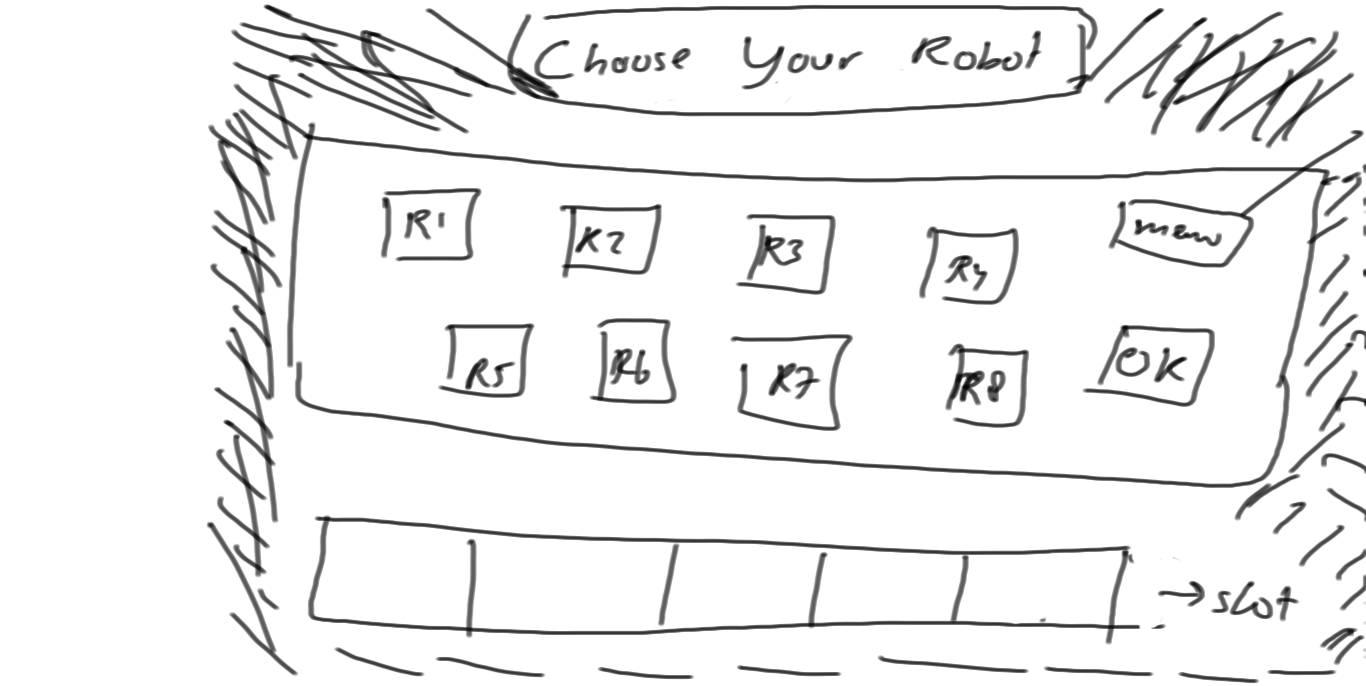 Choose Your Robot
R1 R2 R3 R4 menu
R5 R6 R7 R8 OK
→ slot